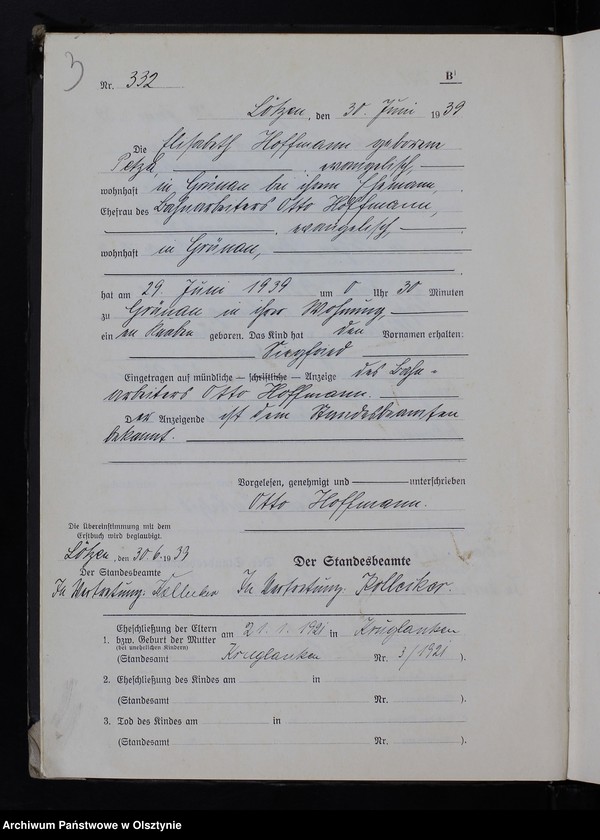 3
Nr. 332
B¹
Lötzen, den 30. Juni 1939
Die Elisabeth Hoffmann geborene
evangelisch,
wohnhaft in Grünau bei ihrem Ehemann,
Ehefrau des Bahnarbeiters Otto Hoffmann,
evangelisch,
wohnhaft in Grünau,
hat am 29. Juni 1939 um 0 Uhr 30 Minuten
zu Grünau in ihrer Wohnung,
ein en Knaben geboren. Das Kind hat den Vornamen erhalten:
Siegfried
Eingetragen auf mündliche — schriftliche — Anzeige des Bahn-
arbeiters Otto Hoffmann.
Der Anzeigende ist dem Standesbeamten
bekannt.
Vorgelesen, genehmigt und unterschrieben
Otto Hoffmann.
Die Übereinstimmung mit dem
Erstbuch wird beglaubigt.
Lötzen, den 30.6.1939
Der Standesbeamte
In Vertretung:
Der Standesbeamte
In Vertretung:
1. Eheschließung der Eltern
bzw. Geburt der Mutter
(bei unehelichen Kindern)
am 21.1.1921 in Kruglanken
(Standesamt Kruglanken Nr. 3/1921 ).
2. Eheschließung des Kindes am in
(Standesamt Nr. ).
3. Tod des Kindes am in
(Standesamt Nr. ).
Archiwum Państwowe w Olsztynie